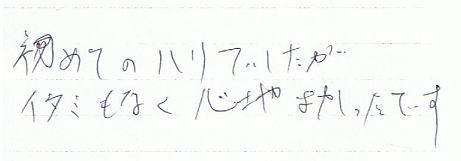 初めてのハリでしたが
イタミもなく心地よかったです